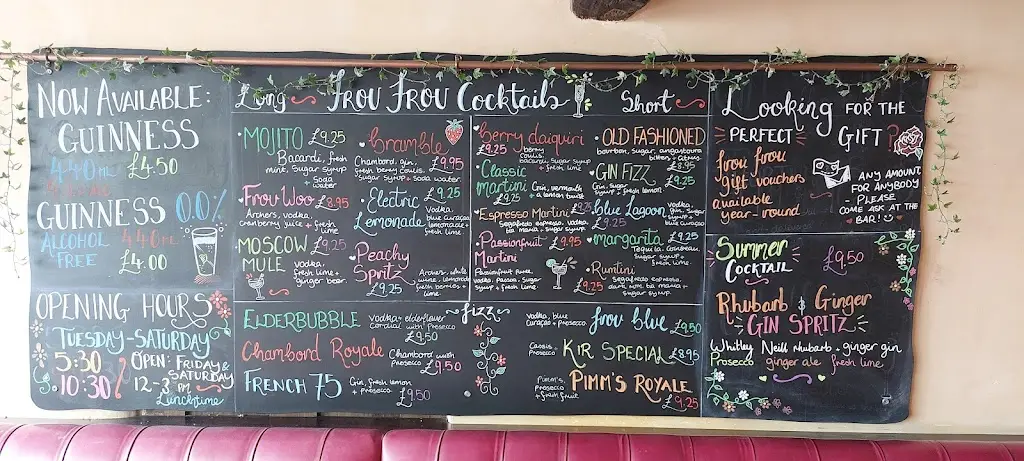 NOW AVAILABLE:
GUINNESS
440ML £4.50
GUINNESS 0.0%
ALCOHOL 440ML
FREE £4.00
OPENING HOURS
TUESDAY-SATURDAY
5:30
10:30
OPEN: FRIDAY &
SATURDAY
12-3PM
Lunchtime
Long FROU FROU Cocktails Short
MOJITO £9.25
Bacardi, fresh
mint, sugar syrup
+ soda
water
Frou Woo £8.95
Archers, vodka,
cranberry juice + fresh
lime
MOSCOW £9.25
MULE vodka,
fresh lime +
ginger beer
bramble
Chambord, gin, £9.95
fresh berry coulis,
sugar syrup + soda water
Electric £9.25
Lemonade vodka,
blue curacao,
lemonade +
fresh lime
Peachy
Spritz
£9.25
Archers, white
wine, lemonade
fresh berries +
lime
berry daiquiri
£9.25 berry
coulis,
bacardi, sugar syrup
+ fresh lime
Classic
martini
£9.25
Gin, vermouth
+ a lemon twist
Espresso Martini £9.25
Passionfruit £9.95
Martini
Passionfruit puree,
vodka, passoa, sugar
syrup + fresh lime
OLD FASHIONED
bourbon, sugar, angostoura
bitters + citrus
£8.95
GIN FIZZ
Gin, sugar
syrup + fresh lemon
£9.25
blue Lagoon
£9.25
vodka,
gin, sugar
syrup, blue
margarita £9.25
Tequila, cointreau,
sugar syrup
+ fresh lime
Rumtini
£9.25
segafredo espresso,
dark rum, tia maria +
sugar syrup
fizz
ELDERBUBBLE
vodka + elderflower
cordial with Prosecco
£9.50
Chambord Royale
Chambord with
prosecco £9.50
FRENCH 75
Gin, fresh lemon
+ prosecco
£9.50
vodka, blue
curaçao + prosecco
frou blue £9.50
Cassis,
prosecco
KIR SPECIAL £8.95
Pimm's,
prosecco
+ fresh fruit
PIMM'S ROYALE
£9.25
Looking FOR THE
PERFECT GIFT
frou frou
gift vouchers
available
year-round
ANY AMOUNT
FOR ANYBODY
- PLEASE
COME ASK AT THE
BAR!
Summer
COCKTAIL £9.50
Rhubarb & Ginger
GIN SPRITZ
Whitley Neill rhubarb + ginger gin
Prosecco ginger ale fresh lime